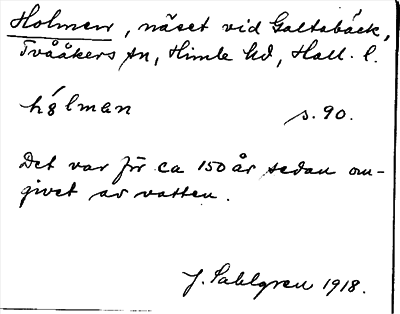 Holmen, näset vid Galtabäck,
Tvååkers sn, Himle hd, Hall. l.
hólman s. 90.
Det var för ca 150 år sedan om-
givet av vatten.
J. Sahlgren 1918.